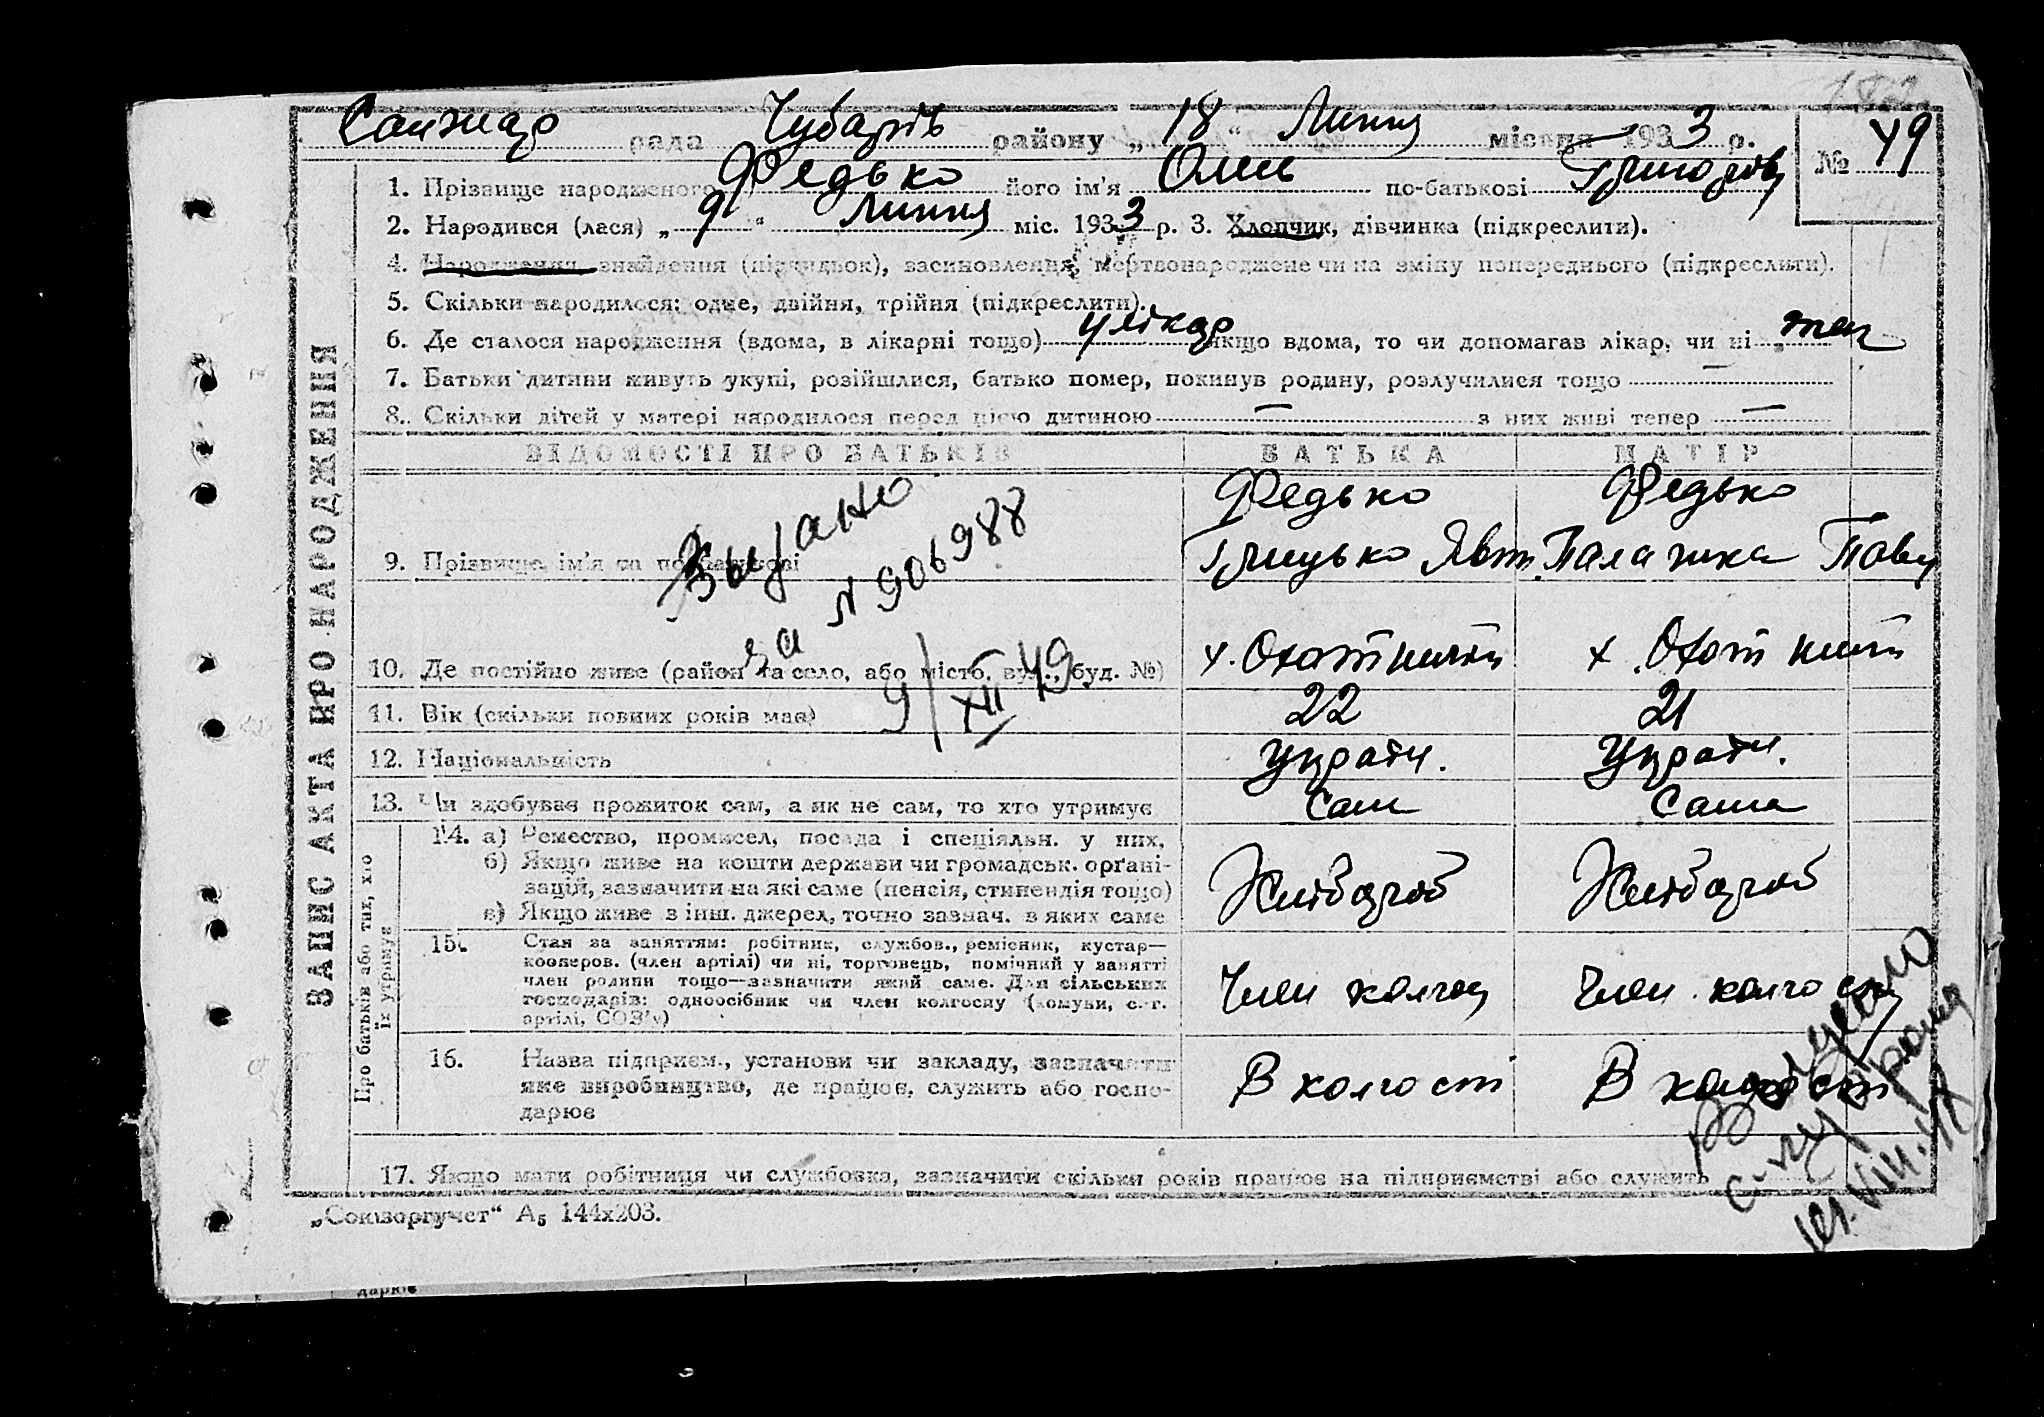 Санжар рада Чубарів району „ 18 “ Липня місяця 1933 р.
№ 49
1. Прізвище народженого Федько його ім'я Олекс по-батькові Григорів
2. Народився (лася) „ 9 “ Липня міс. 1933 р. 3. Хлопчик, дівчинка (підкреслити).
4. Народження, знайдення (підкидьок), засиновлення, мертвонароджене чи на зміну попереднього (підкреслити).
5. Скільки народилося: одне, двійня, трійня (підкреслити).
6. Де сталося народження (вдома, в лікарні тощо) у лікар якщо вдома, то чи допомагав лікар, чи ні
7. Батьки дитини живуть укупі, розійшлися, батько помер, покинув родину, розлучилися тощо —
8. Скільки дітей у матері народилося перед цією дитиною — з них живі тепер —
ЗАПИС АКТА ПРО НАРОДЖЕННЯ
ВІДОМОСТІ ПРО БАТЬКІВ БАТЬКА МАТІР
9. Прізвище, ім'я та по-батькові
Федько Грицько Явт.
Федько Палажка Павл
Выдано
за № 906988
9/XII 49
10. Де постійно живе (район та село, або місто, вул., буд. №) х. Охотничий х. Охотничий
11. Вік (скільки повних років має) 22 21
12. Національність Україн. Україн.
13. Чи здобуває прожиток сам, а як не сам, то хто утримує Сам Сама
Про батьків або тих, хто їх утримує
14. а) Ремество, промисел, посада і спеціяльн. у них,
б) Якщо живе на кошти держави чи громадськ. органі-
зацій, зазначити на які саме (пенсія, стипендія тощо)
в) Якщо живе з інш. джерел, точно зазнач. з яких саме
Хлібороб Хлібороб
15. Стан за заняттям: робітник, службов., ремісник, кустар—
кооперов. (член артілі) чи ні, торговець, помічний у занятті
член родини тощо—зазначити який саме. Для сільських
господарів: одноосібник чи член колгоспу (комуни, с.-г.
артілі, СОЗ'у)
Член колгосп Член колгосп
16. Назва підприєм., установи чи закладу, зазначити
яке виробництво, де працює, служить або госпо-
дарює
В колгоспі В колгоспі
17. Якщо мати робітниця чи службовка, зазначити скільки років працює на підприємстві або служить
„Союзоргучет“ А5 144х203.
дарює